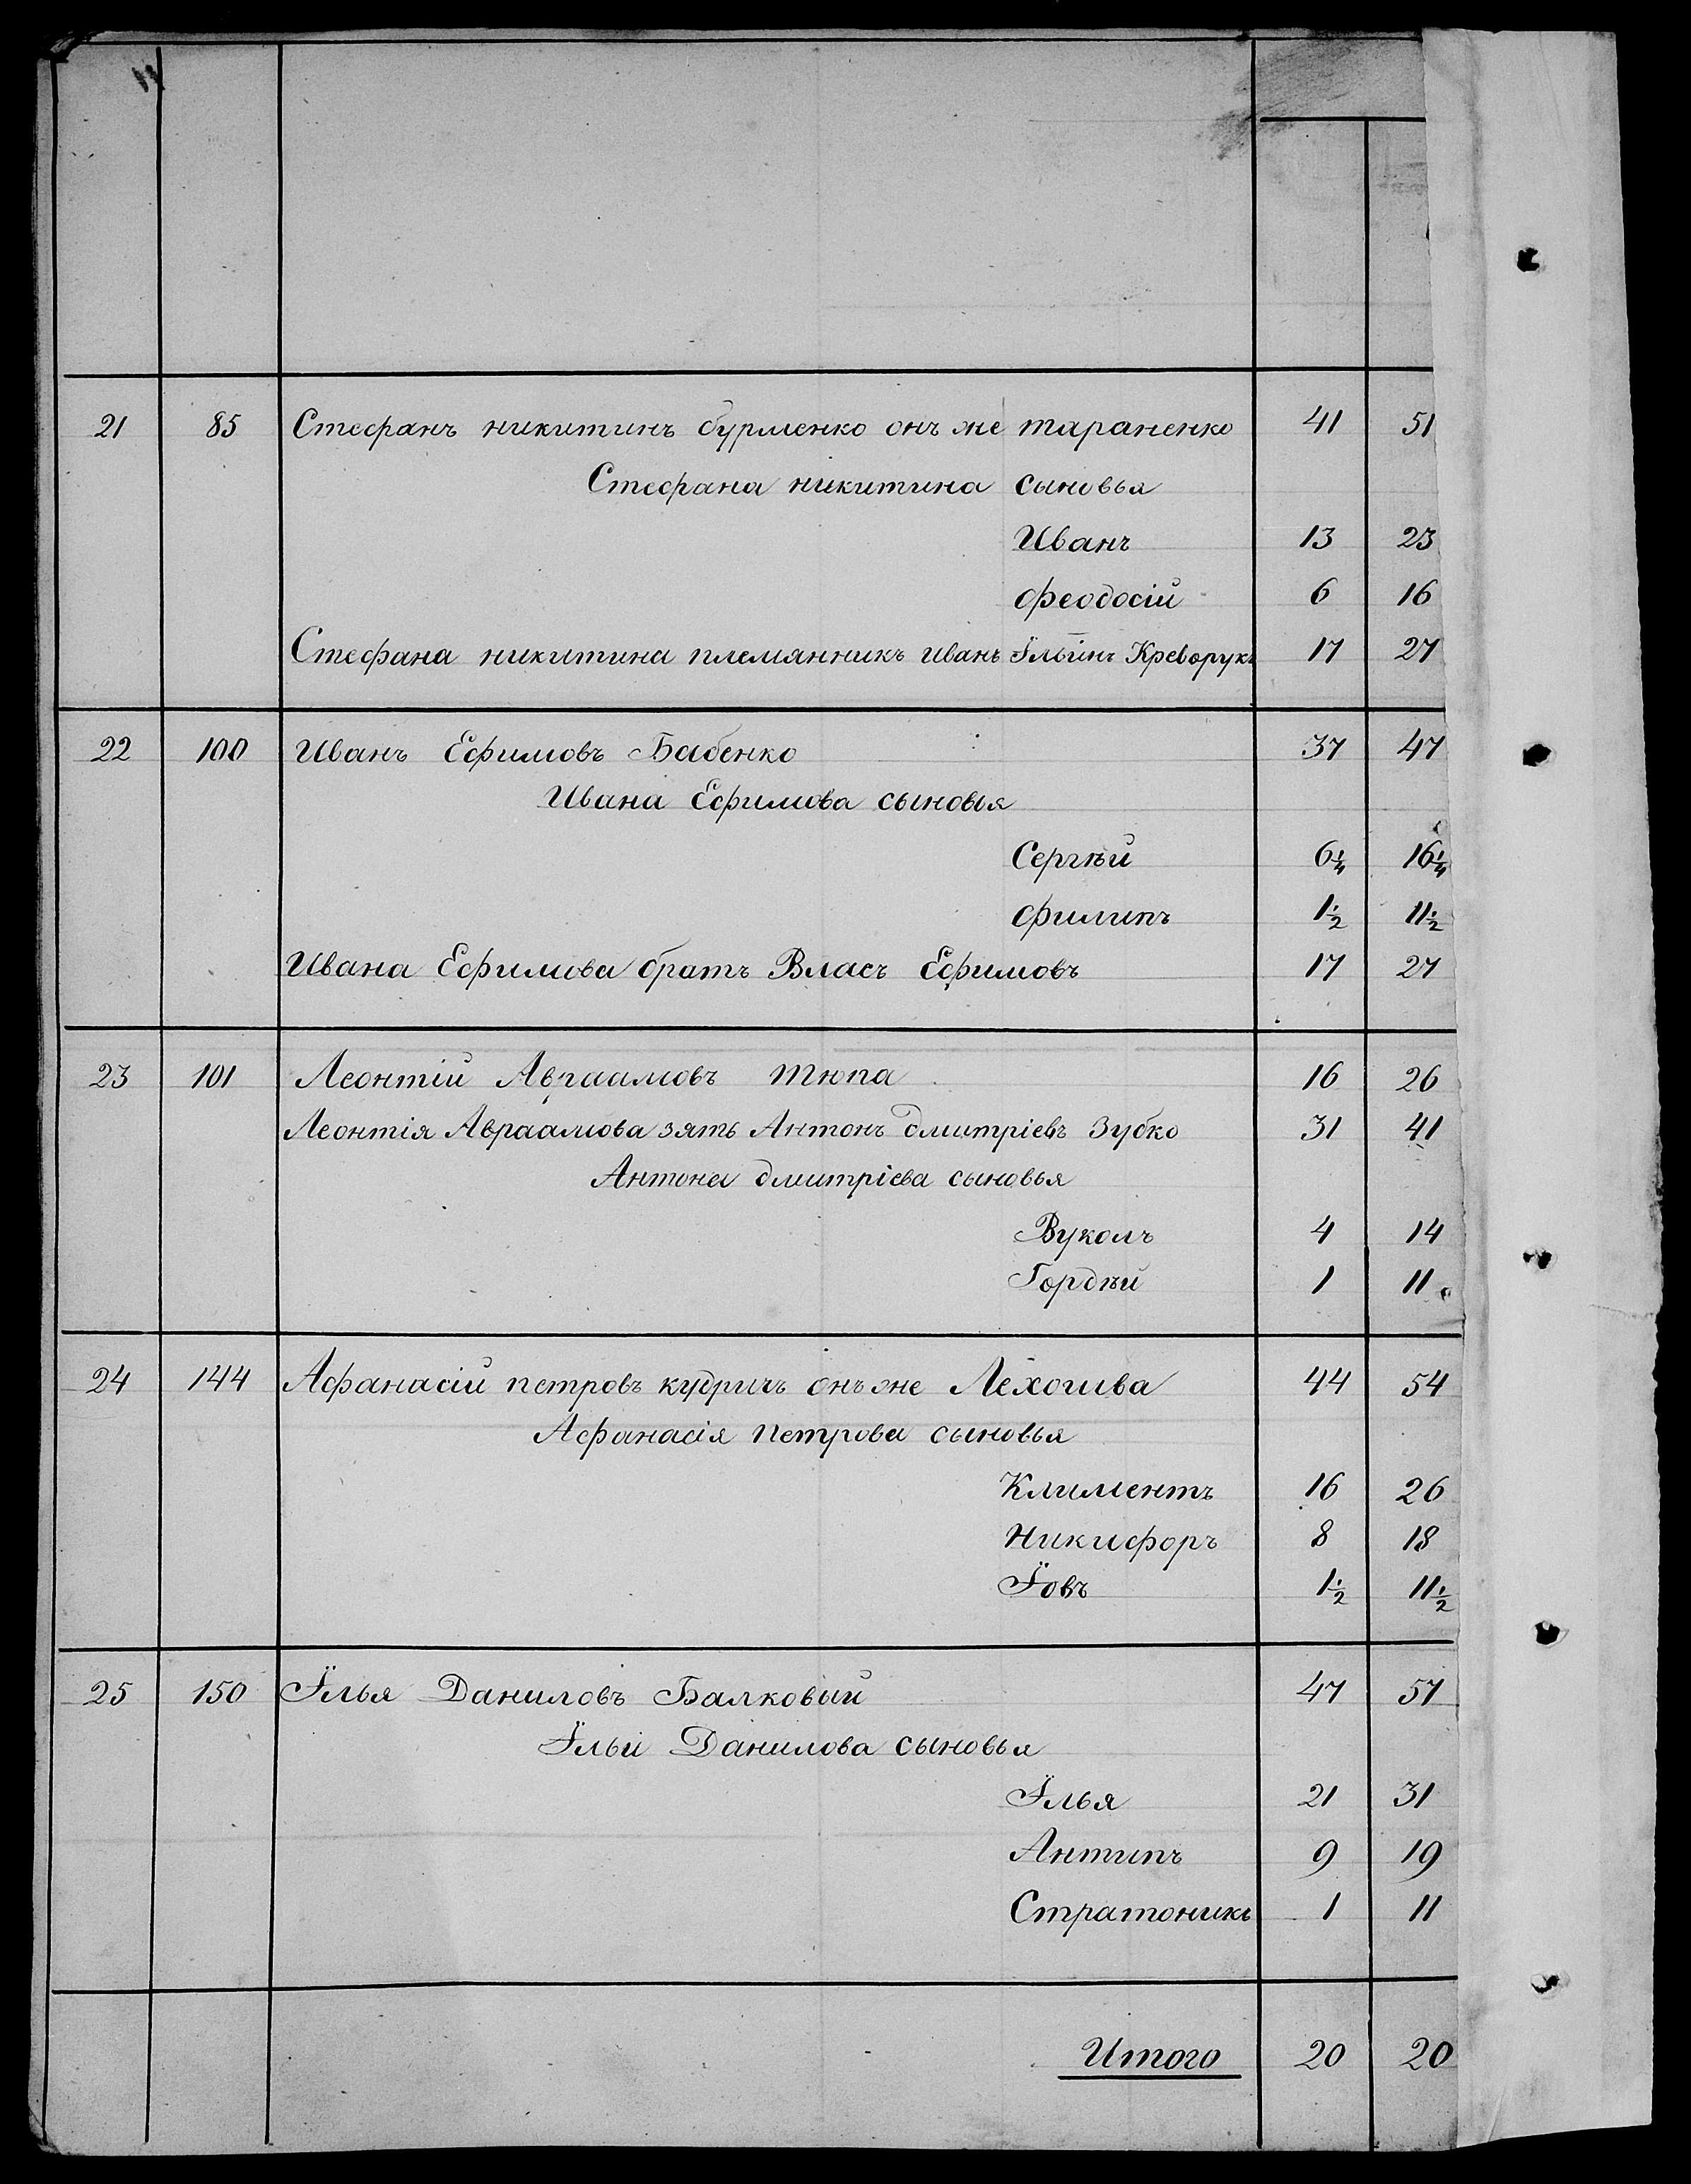 21 85 Стефанъ никитинъ бурменко онъ же тараненко 41 51
Стефана никитина сыновья
Иванъ 13 23
феодосій 6 16
Стефана никитина племянникъ иванъ Ильинъ Креворукъ 17 27
22 100 Иванъ Ефимовъ Бабенко 37 47
Ивана Ефимова сыновья
Сергѣй 6¼ 16¼
филипъ 1½ 11½
Ивана Ефимова братъ Власъ Ефимовъ 17 27
23 101 Леонтій Авраамовъ тюпа 16 26
Леонтія Авраамова зять Антонъ дмитріевъ Зубко 31 41
Антона дмитріева сыновья
Вуколъ 4 14
Гордѣй 1 11
24 144 Афанасій петровъ кудричъ онъ же Лехошва 44 54
Афанасія петрова сыновья
Климентъ 16 26
Никифоръ 8 18
Їовъ 1½ 11½
25 150 Їлья Даниловъ Балковый 47 57
Їльи Данилова сыновья
Їлья 21 31
Антипъ 9 19
Стратоникъ 1 11
Итого 20 20